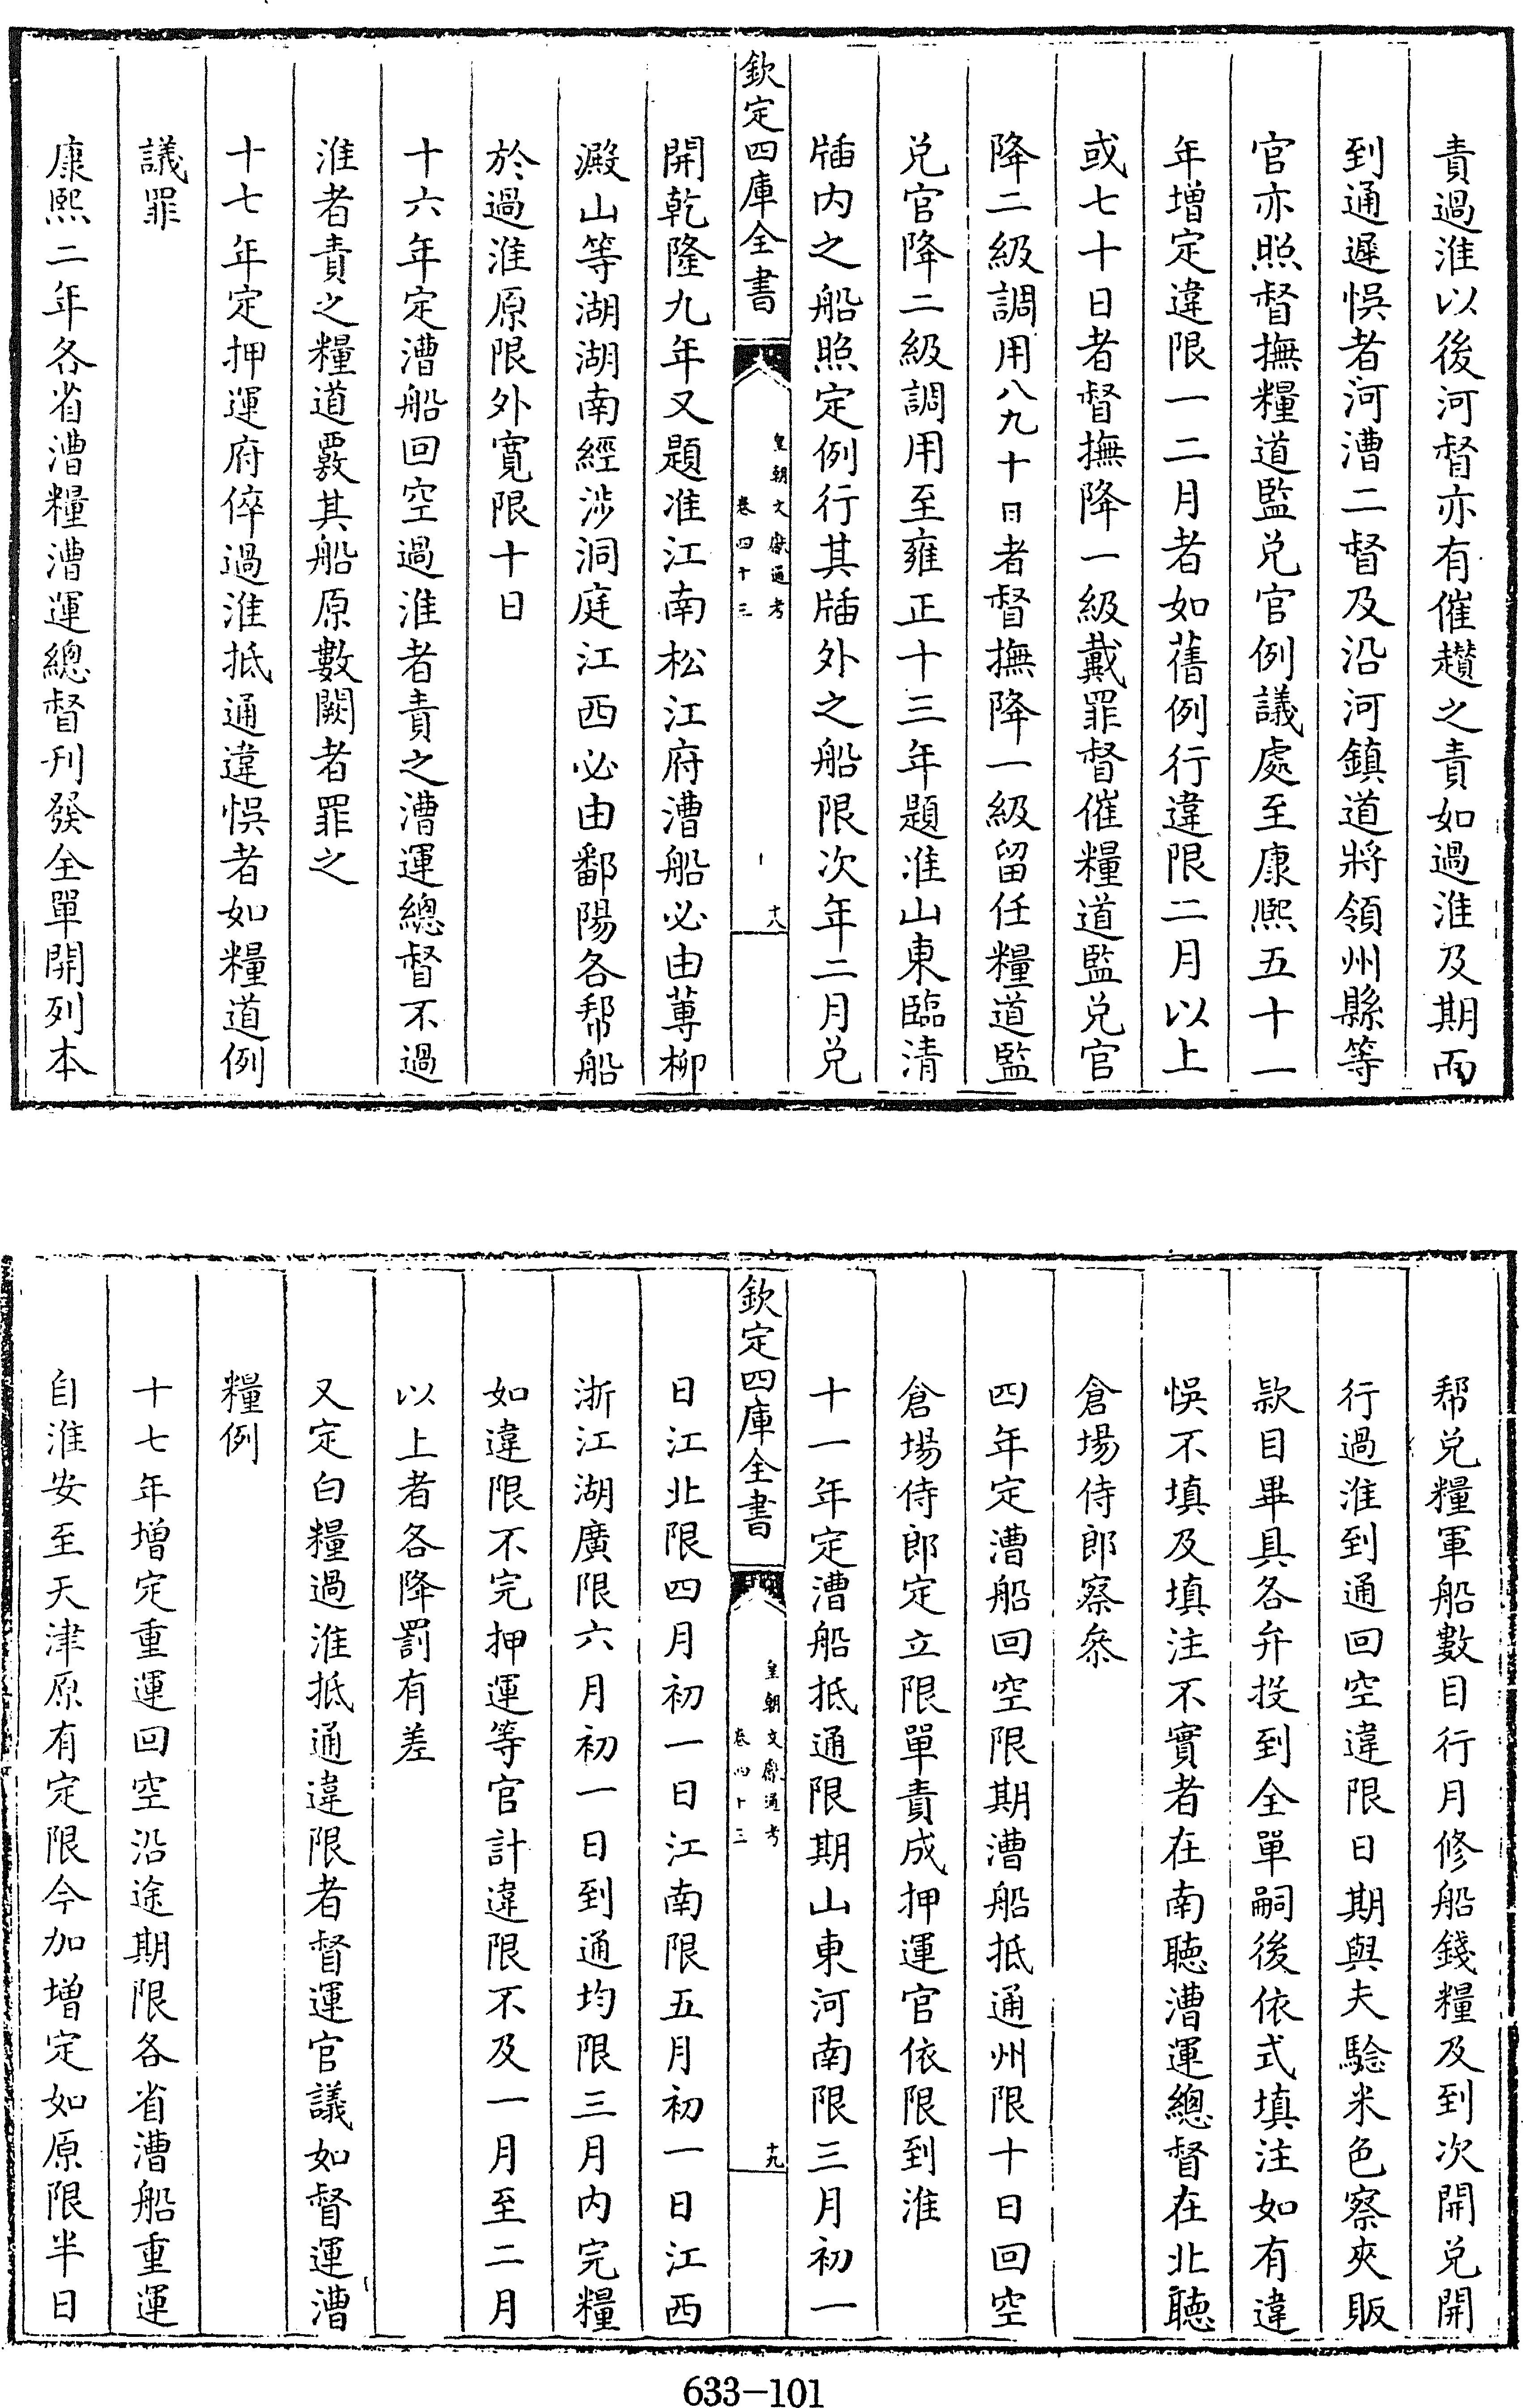 責過淮以後河督亦有催趲之責如過淮及期而
到通遲悞者河漕二督及沿河鎮道將領州縣等
官亦照督撫糧道監兌官例議處至康熙五十一
年增定違限一二月者如舊例行違限二月以上
或七十日者督撫降一級戴罪督催糧道監兌官
降二級調用八九十日者督撫降一級留任糧道監
兌官降二級調用至雍正十三年題准山東臨清
牐内之船照定例行其牐外之船限次年二月兌
欽定四庫全書
皇朝文獻通考
卷四十三
十八
開乾隆九年又題准江南松江府漕船必由蓴柳
澱山等湖湖南經涉洞庭江西必由鄱陽各幇船
於過淮原限外寛限十日
十六年定漕船回空過淮者責之漕運總督不過
淮者責之糧道覈其船原數闕者罪之
十七年定押運府倅過淮抵通違悞者如糧道例
議罪
康熙二年各省漕糧漕運總督刋發全單開列本
幇兌糧軍船數目行月修船錢糧及到次開兌開
行過淮到通回空違限日期與夫驗米色察夾販
欵目畢具各弁投到全單嗣後依式填注如有違
悞不填及填注不實者在南聽漕運總督在北聽
倉場侍郎察叅
四年定漕船回空限期漕船抵通州限十日回空
倉場侍郎定立限單責成押運官依限到淮
十一年定漕船抵通限期山東河南限三月初一
欽定四庫全書
皇朝文獻通考
卷四十三
十九
日江北限四月初一日江南限五月初一日江西
浙江湖廣限六月初一日到通均限三月内完糧
如違限不完押運等官計違限不及一月至二月
以上者各降罰有差
又定白糧過淮抵通違限者督運官議如督運漕
糧例
十七年增定重運回空沿途期限各省漕船重運
自淮安至天津原有定限今加増定如原限半日
633-101